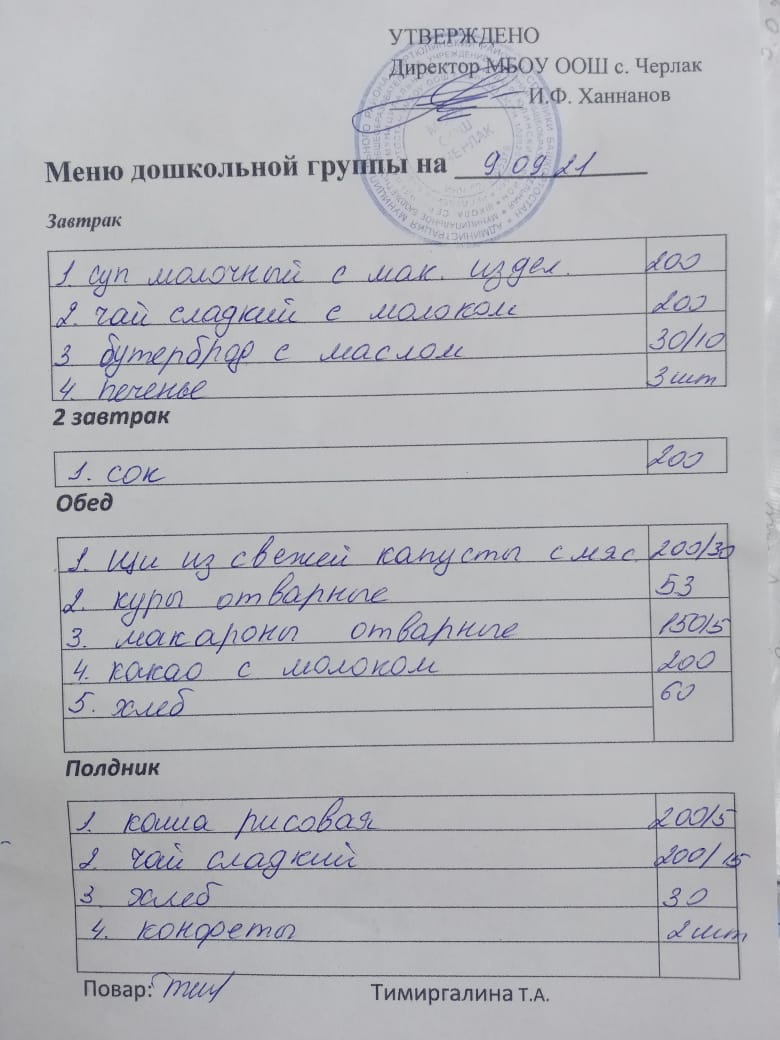 УТВЕРЖДЕНО
Директор МБОУ ООШ с. Черлак
И.Ф. Ханнанов
Меню дошкольной группы на 9.09.21
Завтрак
1. суп молочный с мак. издел. 200
2. чай сладкий с молоком 200
3 бутерброд с маслом 30/10
4. печенье 3 шт
2 завтрак
1. сок 200
Обед
1. щи из свежей капусты с мяс. 200/30
2. куры отварные 53
3. макароны отварные 150/5
4. какао с молоком 200
5. хлеб 60
Полдник
1. каша рисовая 200/5
2. чай сладкий 200/15
3. хлеб 30
4. конфеты 2 шт
Повар: Тимиргалина Т.А.